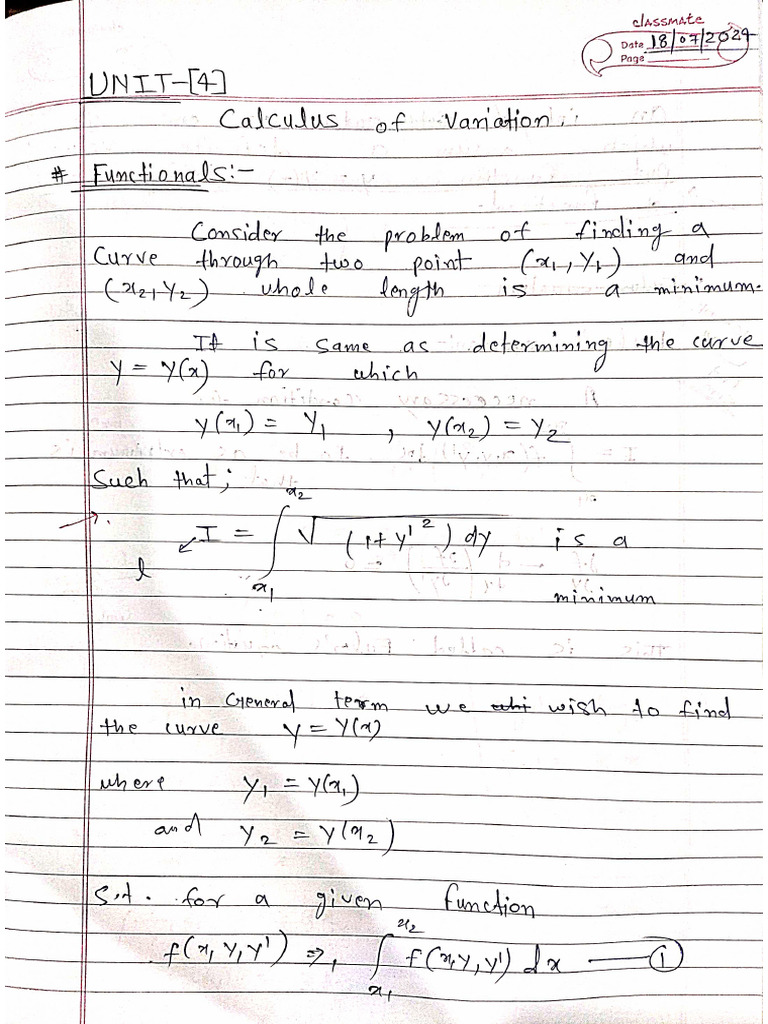 classmate
Date 18/07/2024
Page
UNIT-[4]
Calculus of Variation.
# Functionals:-
Consider the problem of finding a
Curve through two point (x₁, Y₁) and
(x₂, Y₂) whole length is a minimum.
It is same as determining the curve
y = y(x) for which
y(x₁) = Y₁ , y(x₂) = Y₂
Such that;
I = ∫ₓ₁ˣ² √(1+y'²) dy is a
l
minimum
in General term we wish to find
the curve y = y(x)
where y₁ = y(x₁)
and y₂ = y(x₂)
S.t. for a given function
f(x, y, y') ⇒, ∫ₓ₁ˣ² f(x,y,y') dx —— ①